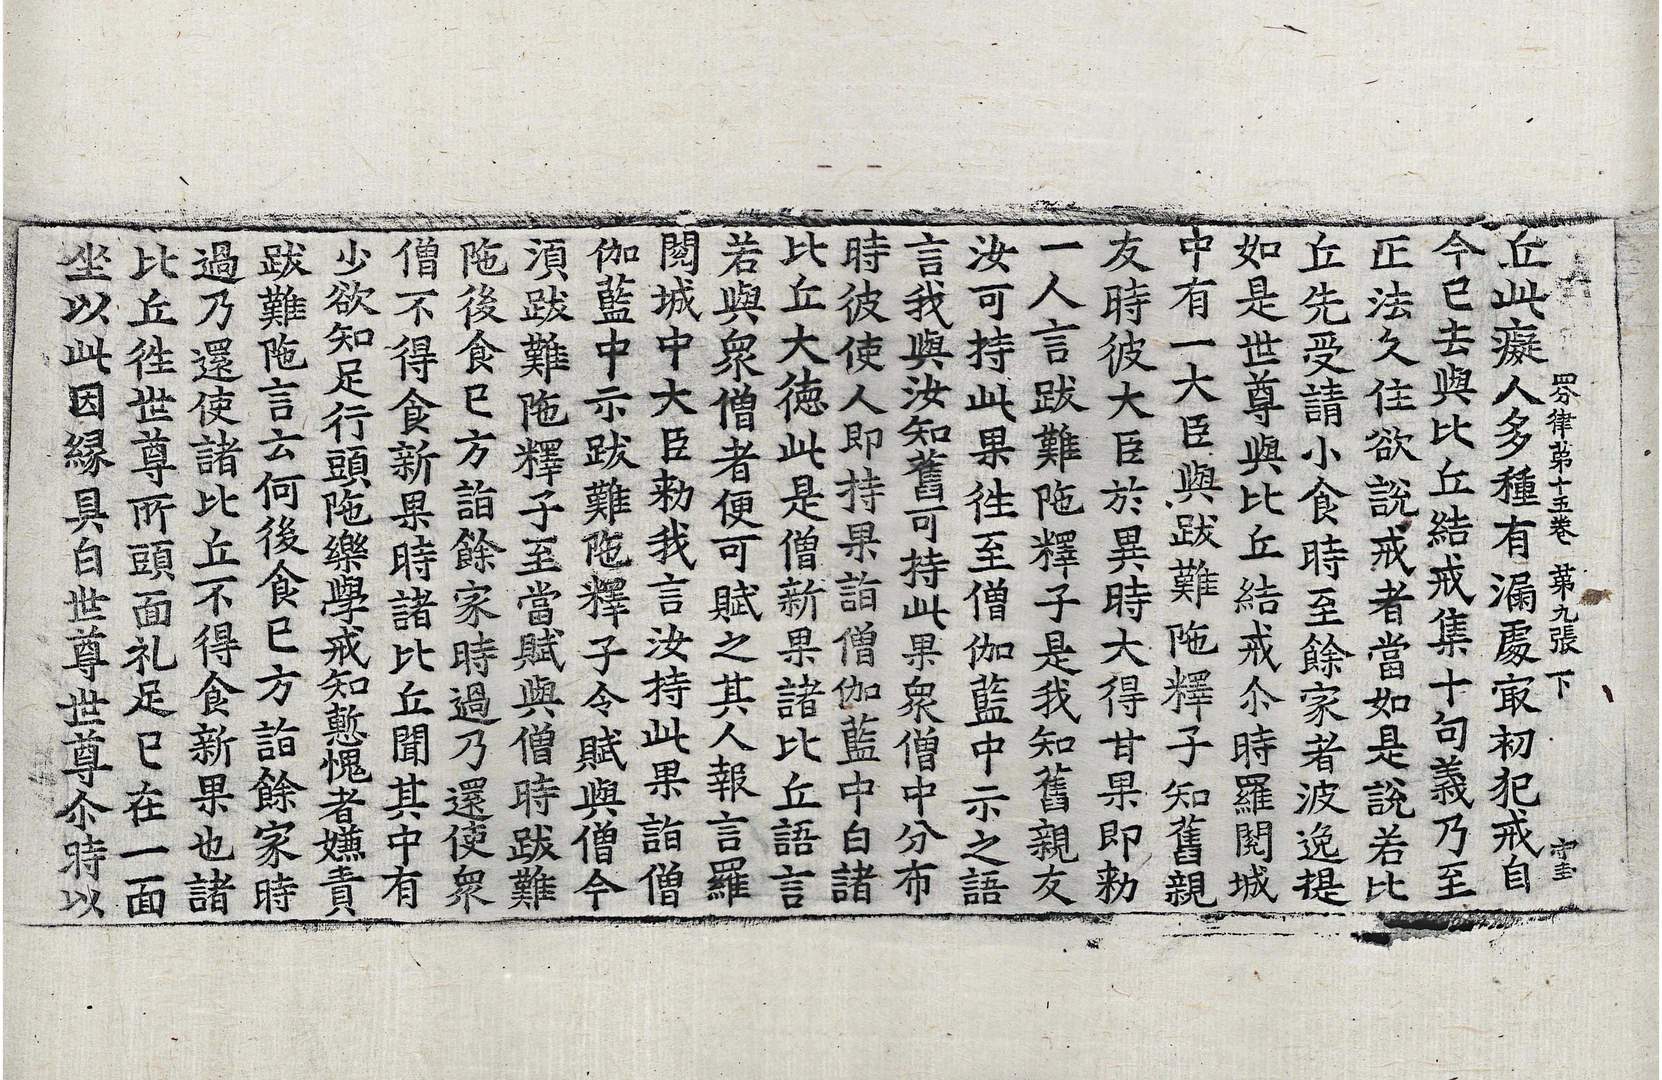 四分律第十五卷 第九張 下 守圭
丘此癡人多種有漏處㝡初犯戒自
今已去與比丘結戒集十句義乃至
正法久住欲說戒者當如是說若比
丘先受請小食時至餘家者波逸提
如是世尊與比丘結戒尒時羅閱城
中有一大臣與跋難陁釋子知舊親
友時彼大臣於異時大得甘果即勑
一人言跋難陁釋子是我知舊親友
汝可持此果徃至僧伽藍中示之語
言我與汝知舊可持此果衆僧中分布
時彼使人即持果詣僧伽藍中白諸
比丘大德此是僧新果諸比丘語言
若與衆僧者便可賦之其人報言羅
閱城中大臣勑我言汝持此果詣僧
伽藍中示跋難陁釋子令賦與僧今
須跋難陁釋子至當賦與僧時跋難
陁後食已方詣餘家時過乃還使衆
僧不得食新果時諸比丘聞其中有
少欲知足行頭陁樂學戒知慙愧者嫌責
跋難陁言云何後食已方詣餘家時
過乃還使諸比丘不得食新果也諸
比丘徃世尊所頭面礼足已在一面
坐以此因緣具白世尊世尊尒時以